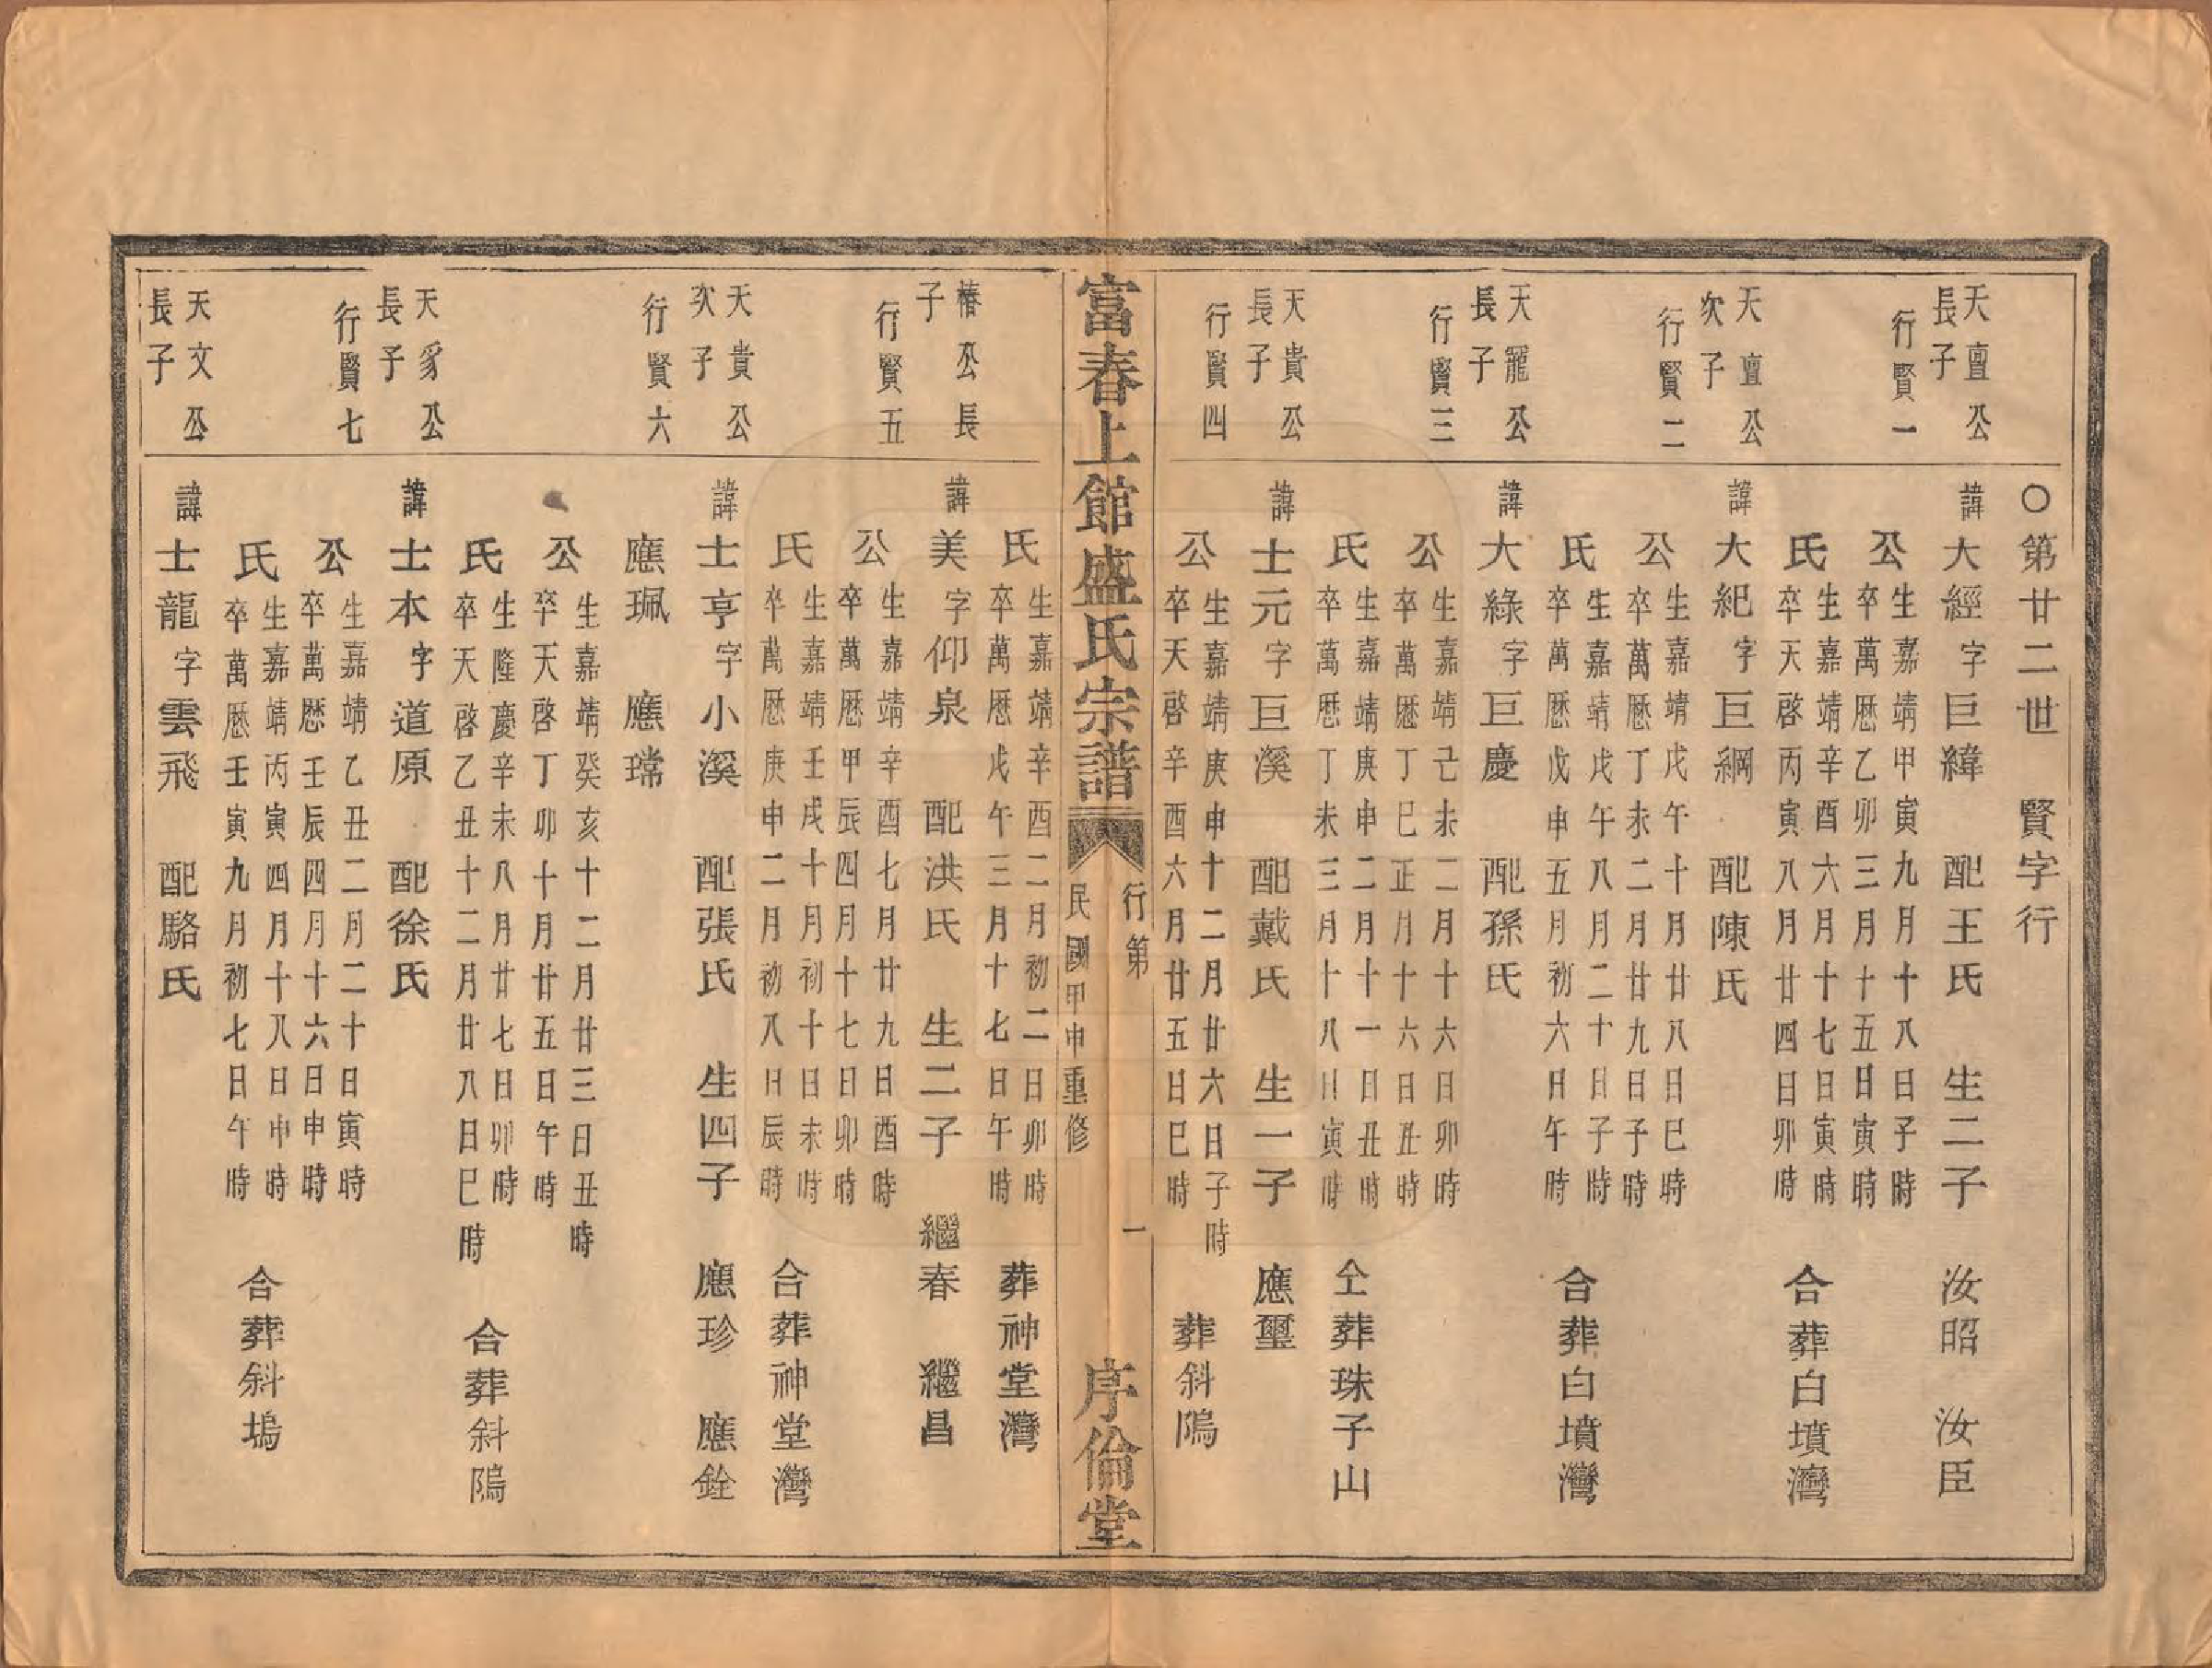 〇第廿二世　賢字行
天亶公
長子
行賢一
諱大經字巨緯　配王氏　生二子　汝昭　汝臣
公生嘉靖甲寅九月十八日子時
卒萬歷乙卯三月十五日寅時
氏生嘉靖辛酉六月十七日寅時
卒天啓丙寅八月廿四日卯時
合葬白墳灣
天亶公
次子
行賢二
諱大紀字巨綱　配陳氏
公生嘉靖戊午十月廿八日巳時
卒萬歷丁未二月廿九日子時
氏生嘉靖戊午八月二十日子時
卒萬歷戊申五月初六日午時
合葬白墳灣
天寵公
長子
行賢三
諱大綠字巨慶　配孫氏
公生嘉靖己未二月十六日卯時
卒萬歷丁巳正月十六日丑時
氏生嘉靖庚申二月十一日丑時
卒萬歷丁未三月十八日寅時
仝葬珠子山
天貴公
長子
行賢四
諱士元字巨溪　配戴氏　生一子　應璽
公生嘉靖庚申十二月廿六日子時
卒天啓辛酉六月廿五日巳時
葬斜隖
富春上館盛氏宗譜
行第
一
民國甲申重修
序倫堂
氏生嘉靖辛酉二月初二日卯時
卒萬歷戊午三月十七日午時
葬神堂灣
椿公長
子
行賢五
諱美字仰泉　配洪氏　生二子　繼春　繼昌
公生嘉靖辛酉七月廿九日酉時
卒萬歷甲辰四月十七日卯時
氏生嘉靖壬戌十月初十日未時
卒萬歷庚申二月初八日辰時
合葬神堂灣
天貴公
次子
行賢六
諱士亨字小溪　配張氏　生四子　應珍　應銓
應珮　應瑺
公生嘉靖癸亥十二月廿三日丑時
卒天啓丁卯十月廿五日午時
氏生隆慶辛未八月廿七日卯時
卒天啓乙丑十二月廿八日巳時
合葬斜隖
天豸公
長子
行賢七
諱士本字道原　配徐氏
公生嘉靖乙丑二月二十日寅時
卒萬歷壬辰四月十六日申時
氏生嘉靖丙寅四月十八日申時
卒萬歷壬寅九月初七日午時
合葬斜塢
天文公
長子
諱士龍字雲飛　配駱氏